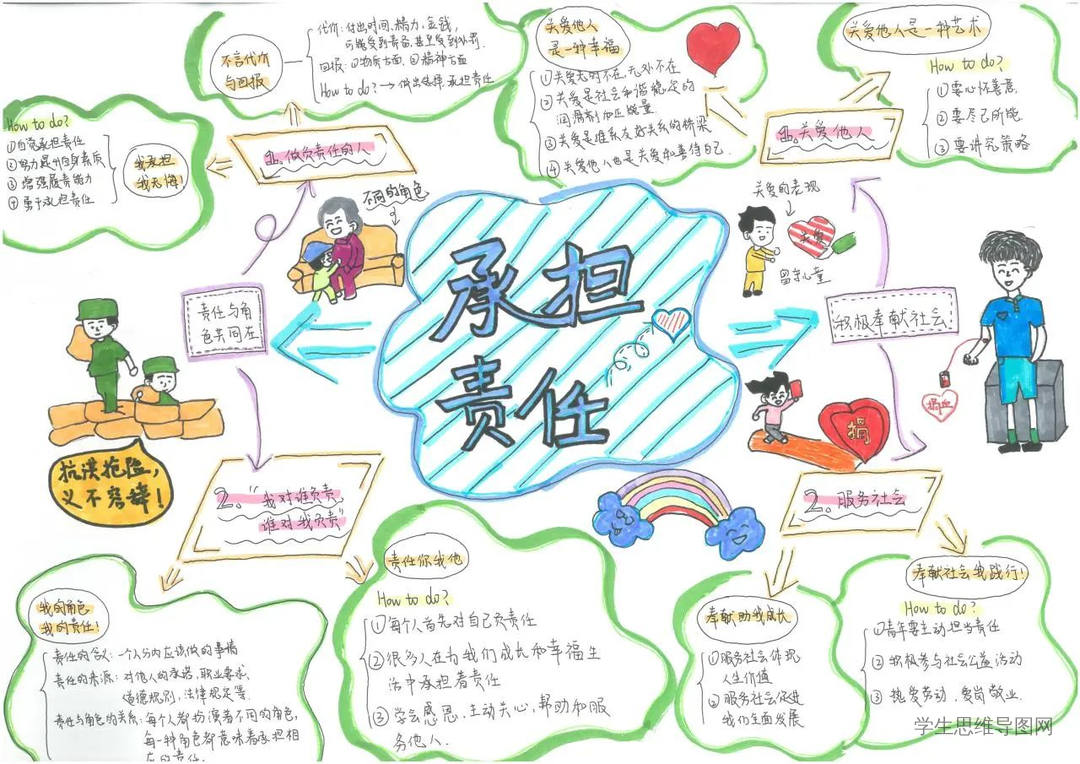 承担
责任
责任与角
色共同在
1.做负责任的人
不言代价
与回报
代价:付出时间、精力、金钱,
可能受到责备,甚至受到处罚.
回报:①物质方面 ②精神方面
How to do? → 做出选择,承担责任
我承担
我无悔!
How to do?
①自觉承担责任
②努力提升自身素质
③增强履责能力
④勇于承担责任
不同的角色
抗洪抢险,
义不容辞!
2.“我对谁负责
谁对我负责”
我的角色
我的责任!
责任的含义:一个人分内应该做的事情
责任的来源:对他人的承诺,职业要求,
道德规则,法律规定等.
责任与角色的关系:每个人都扮演着不同的角色,
每一种角色都意味着承担相
应的责任.
责任你我他
How to do?
①每个人首先对自己负责任
②很多人在为我们成长和幸福生
活中承担着责任
③学会感恩,主动关心,帮助和服
务他人.
积极奉献社会
1.关爱他人
关爱他人
是一种幸福
①关爱无时不在,无处不在
②关爱是社会和谐稳定的
润滑剂和正能量
③关爱是维系友好关系的桥梁
④关爱他人也是关爱和善待自己.
关爱他人是一种艺术
How to do?
①要心怀善意
②要尽己所能
③要讲究策略
关爱的表现
关爱
留守儿童
捐血
捐
2.服务社会
奉献助我成长
①服务社会体现
人生价值
②服务社会促进
我们全面发展
奉献社会我践行!
How to do?
①青年要主动担当责任
②积极参与社会公益活动
③热爱劳动,爱岗敬业.
学生思维导图网